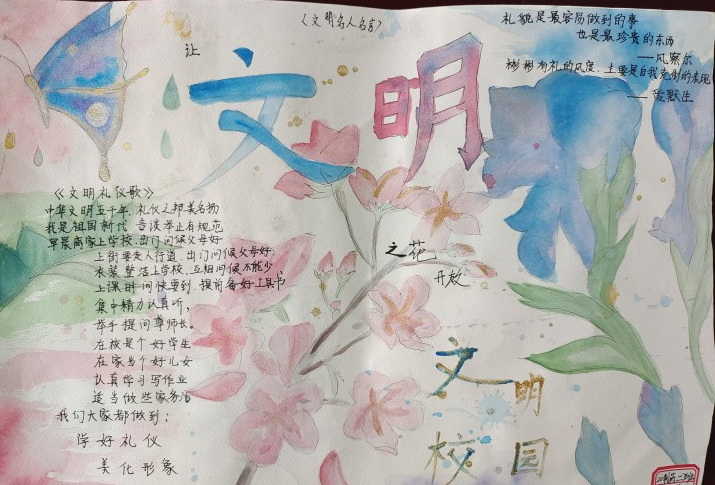 《文明名人名言》
礼貌是最容易做到的事
也是最珍贵的东西
——风察尔
彬彬有礼的风度,主要是自我克制的表现
——爱默生
让
文明
之花
开放
《文明礼仪歌》
中华文明五千年,礼仪之邦美名扬
我是祖国新代 言谈举止有规范
早晨离家上学校,出门问候父母好
上街要走人行道,出门问候父母好
衣装整洁上学校,互相问候不能少
上课时间快要到 提前备好工具书
集中精力认真听,
举手提问尊师长。
在校是个好学生
在家当个好儿女
认真学习写作业
适当做些家务活
我们大家都做到:
学好礼仪
美化形象
文明
校园